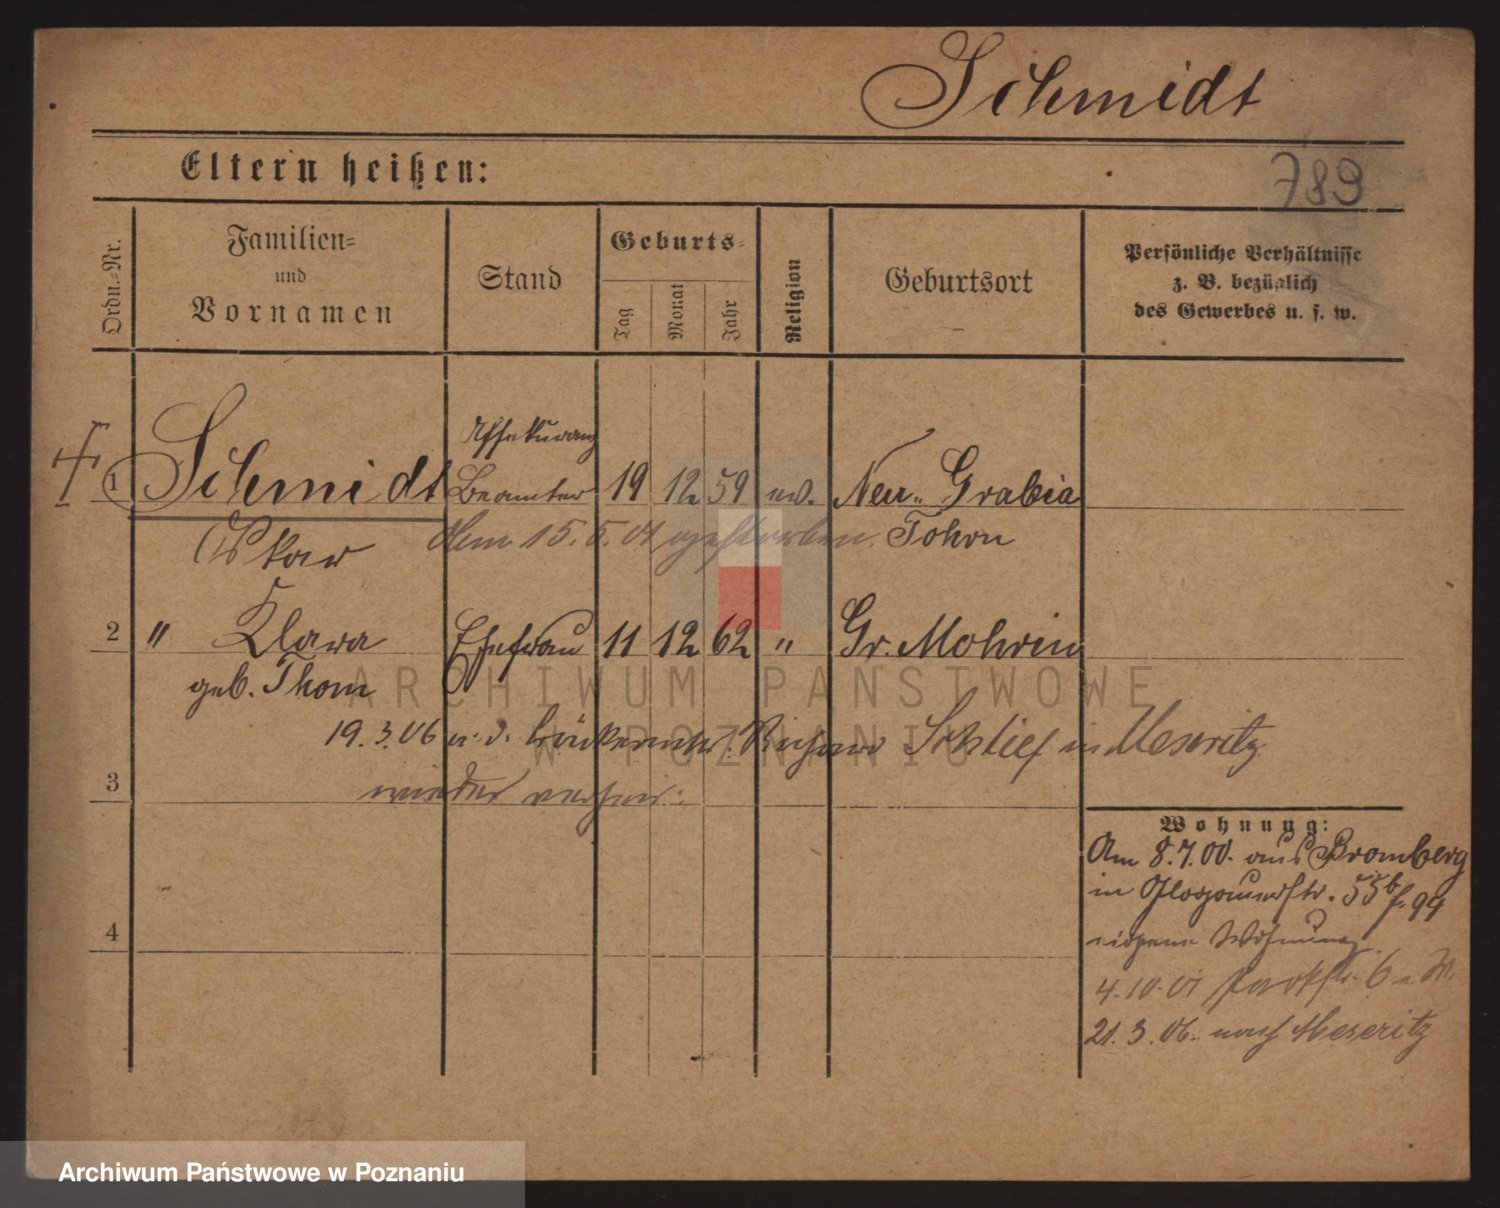 Schmidt
Eltern heißen:
789
Ordn.-Nr.
Familien-
und
Vornamen
Stand
Geburts-
Tag
Monat
Jahr
Religion
Geburtsort
Persönliche Verhältnisse
z. B. bezüglich
des Gewerbes u. s. w.
1 Schmidt Assekuranz Beamter 19 12 59 ev. Neu-Grabia
Oskar Am 15.5.01 gestorben. Tohrn
2 " Klara Ehefrau 11 12 62 " Gr. Mohrin
geb. Thom
19.3.06 a. d. Bäckermstr. Richard Schlief in Meseritz
3 wieder verheir.
4
Wohnung:
Am 8.7.00. aus Bromberg
in Glogauerstr. 55b f. 94
eigene Wohnung.
4.10.01 Parkstr. 6
21.3.06. nach Meseritz
ARCHIWUM PAŃSTWOWE
W POZNANIU
Archiwum Państwowe w Poznaniu